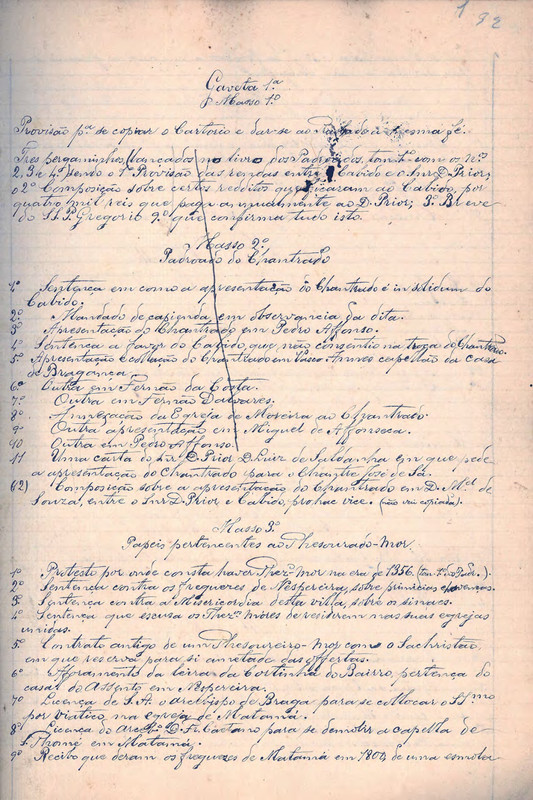 192
Gaveta 1.ª
Masso 1.º
Provisão p.ª se copiar o Cartorio e dar-se ao
Tres pergaminhos, lançados no livro dos Padroados, com os n.os
2. 3 e 4. Sendo o 1º Provisão das rendas entre Cabido e o Snr D. Prior;
o 2º Composição sobre certos redditos que ficaram ao Cabido, por
quatro mil reis que paga annualmente ao D. Prior; 3º Breve
do S. P. Gregorio 9º que confirma tudo isto.
Masso 2º
Padroado do Chantrado
1º Sentença em como a apresentação do Chantrado é in solidum do
Cabido.
2º Mandado de capienda em observancia da dita.
3º Apresentação do Chantrado em Pedro Affonso.
4º Sentença a favor do Cabido, que não consentio na troca do Chantrado.
5º Apresentação e collação do Chantrado em Vasco Annes capellão da casa
de Bragança.
6º Outra em Fernão da Costa.
7º Outra em Fernão Dalvares.
8º Annexação da Egreja de Moreira ao Chantrado.
9º Outra apresentação em Miguel de Affonseca.
10 Outra em Pedro Affonso.
11 Uma carta do Snr. D. Prior D. Luiz de Saldanha em que pede
a apresentação do Chantrado para o Chantre José de Sá.
(12) Composição sobre a apresentação do Chantrado em D. M.el de
Souza, entre o Snr D. Prior e Cabido, pro hac vice. (não vai copiada).
Masso 3º
Papeis pertencentes ao Thesourado-Mór
1º Protesto por onde consta haver Thez.º Mór na era de 1356.
2º Sentença contra os freguezes de Nespereira, sobre primicias
3º Sentença contra a Misericordia desta villa, sobre os sinaes.
4º Sentença que escusa os Thez.os Móres de residirem nas suas egrejas
unidas.
5º Contrato antigo de um Thesoureiro-Mór com o Sachristão,
em que reserva para si ametade das offertas.
6º Afforamento da leira da Cortinha do Bairro, pertença do
casal do Assento em Nespereira.
7º Licença de S. A. o arcebispo de Braga para se collocar o SS.mo
por viatico na egreja de Matamá.
8º Licença do arceb.º D. Fr. Caetano para se demolir a capella de
S. Thomé em Matamá.
9º Recibo que deram os freguezes de Matamá em 1804 de uma esmola